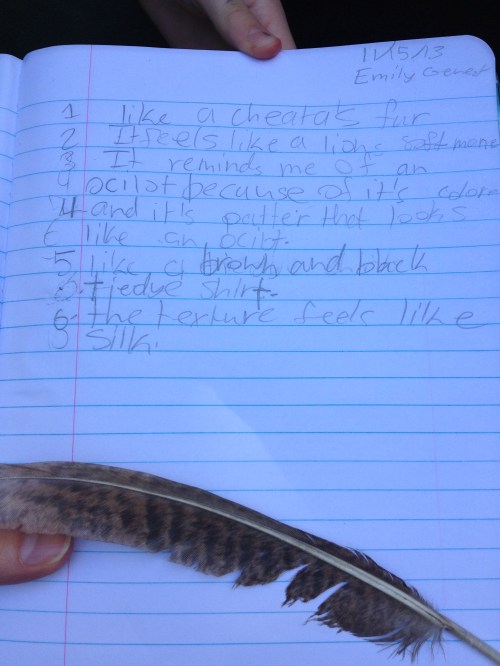 11/5/13
Emily
1 like a cheata's fur
2 It feels like a lions soft mane
3 It reminds me of an
4 ocilot because of it's colore
4 and it's patter that looks
like an ocilot.
5 like a brown and black
tiedye shirt.
6. the texture feels like
silk.